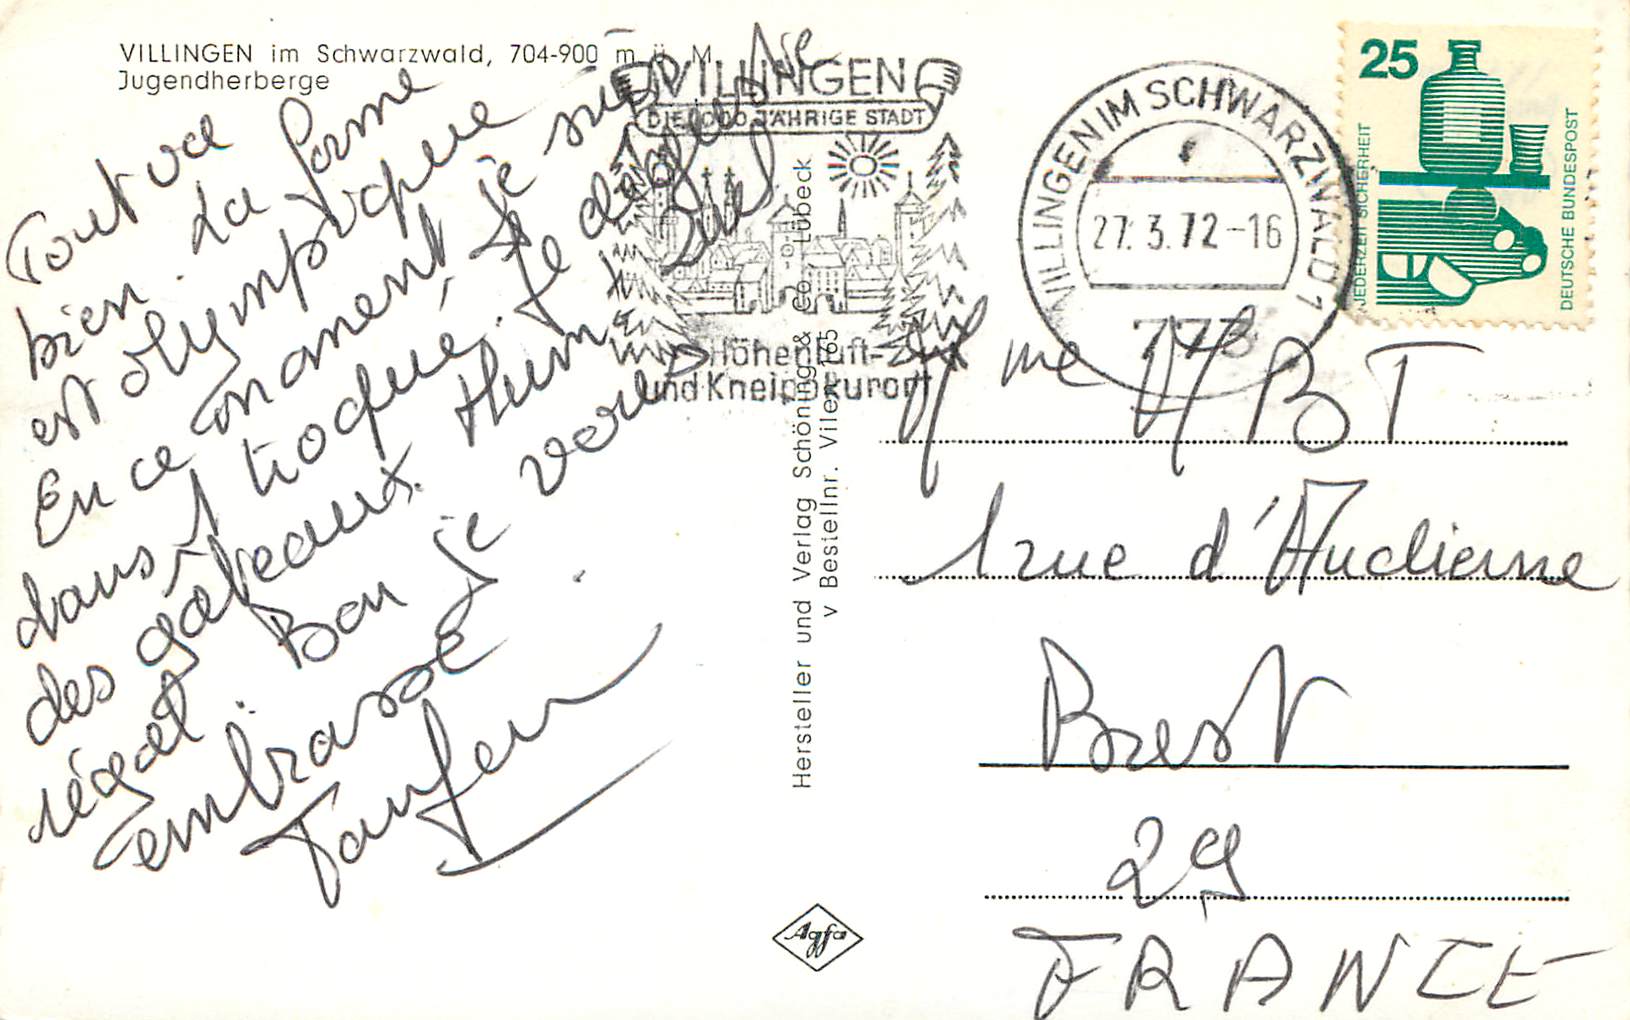 VILLINGEN im Schwarzwald, 704-900 m ü. M.
Jugendherberge
Tout va
bien. La forme
est olympique
En ce moment je suis
dans 1 troquet. Je déguste
des gâteaux. Hum
régal Bon je vous
embrasse
VILLINGEN
DIE 1000 JÄHRIGE STADT
Höhenluft-
und Kneippkurort
VILLINGEN IM SCHWARZWALD 1
27.3.72-16
773
25
JEDERZEIT SICHERHEIT
DEUTSCHE BUNDESPOST
Hersteller und Verlag Schöning & Co., Lübeck
v Bestellnr. Vilen 765
Mme BT
1 rue d'Audierne
Brest
29
FRANCE
Agfa